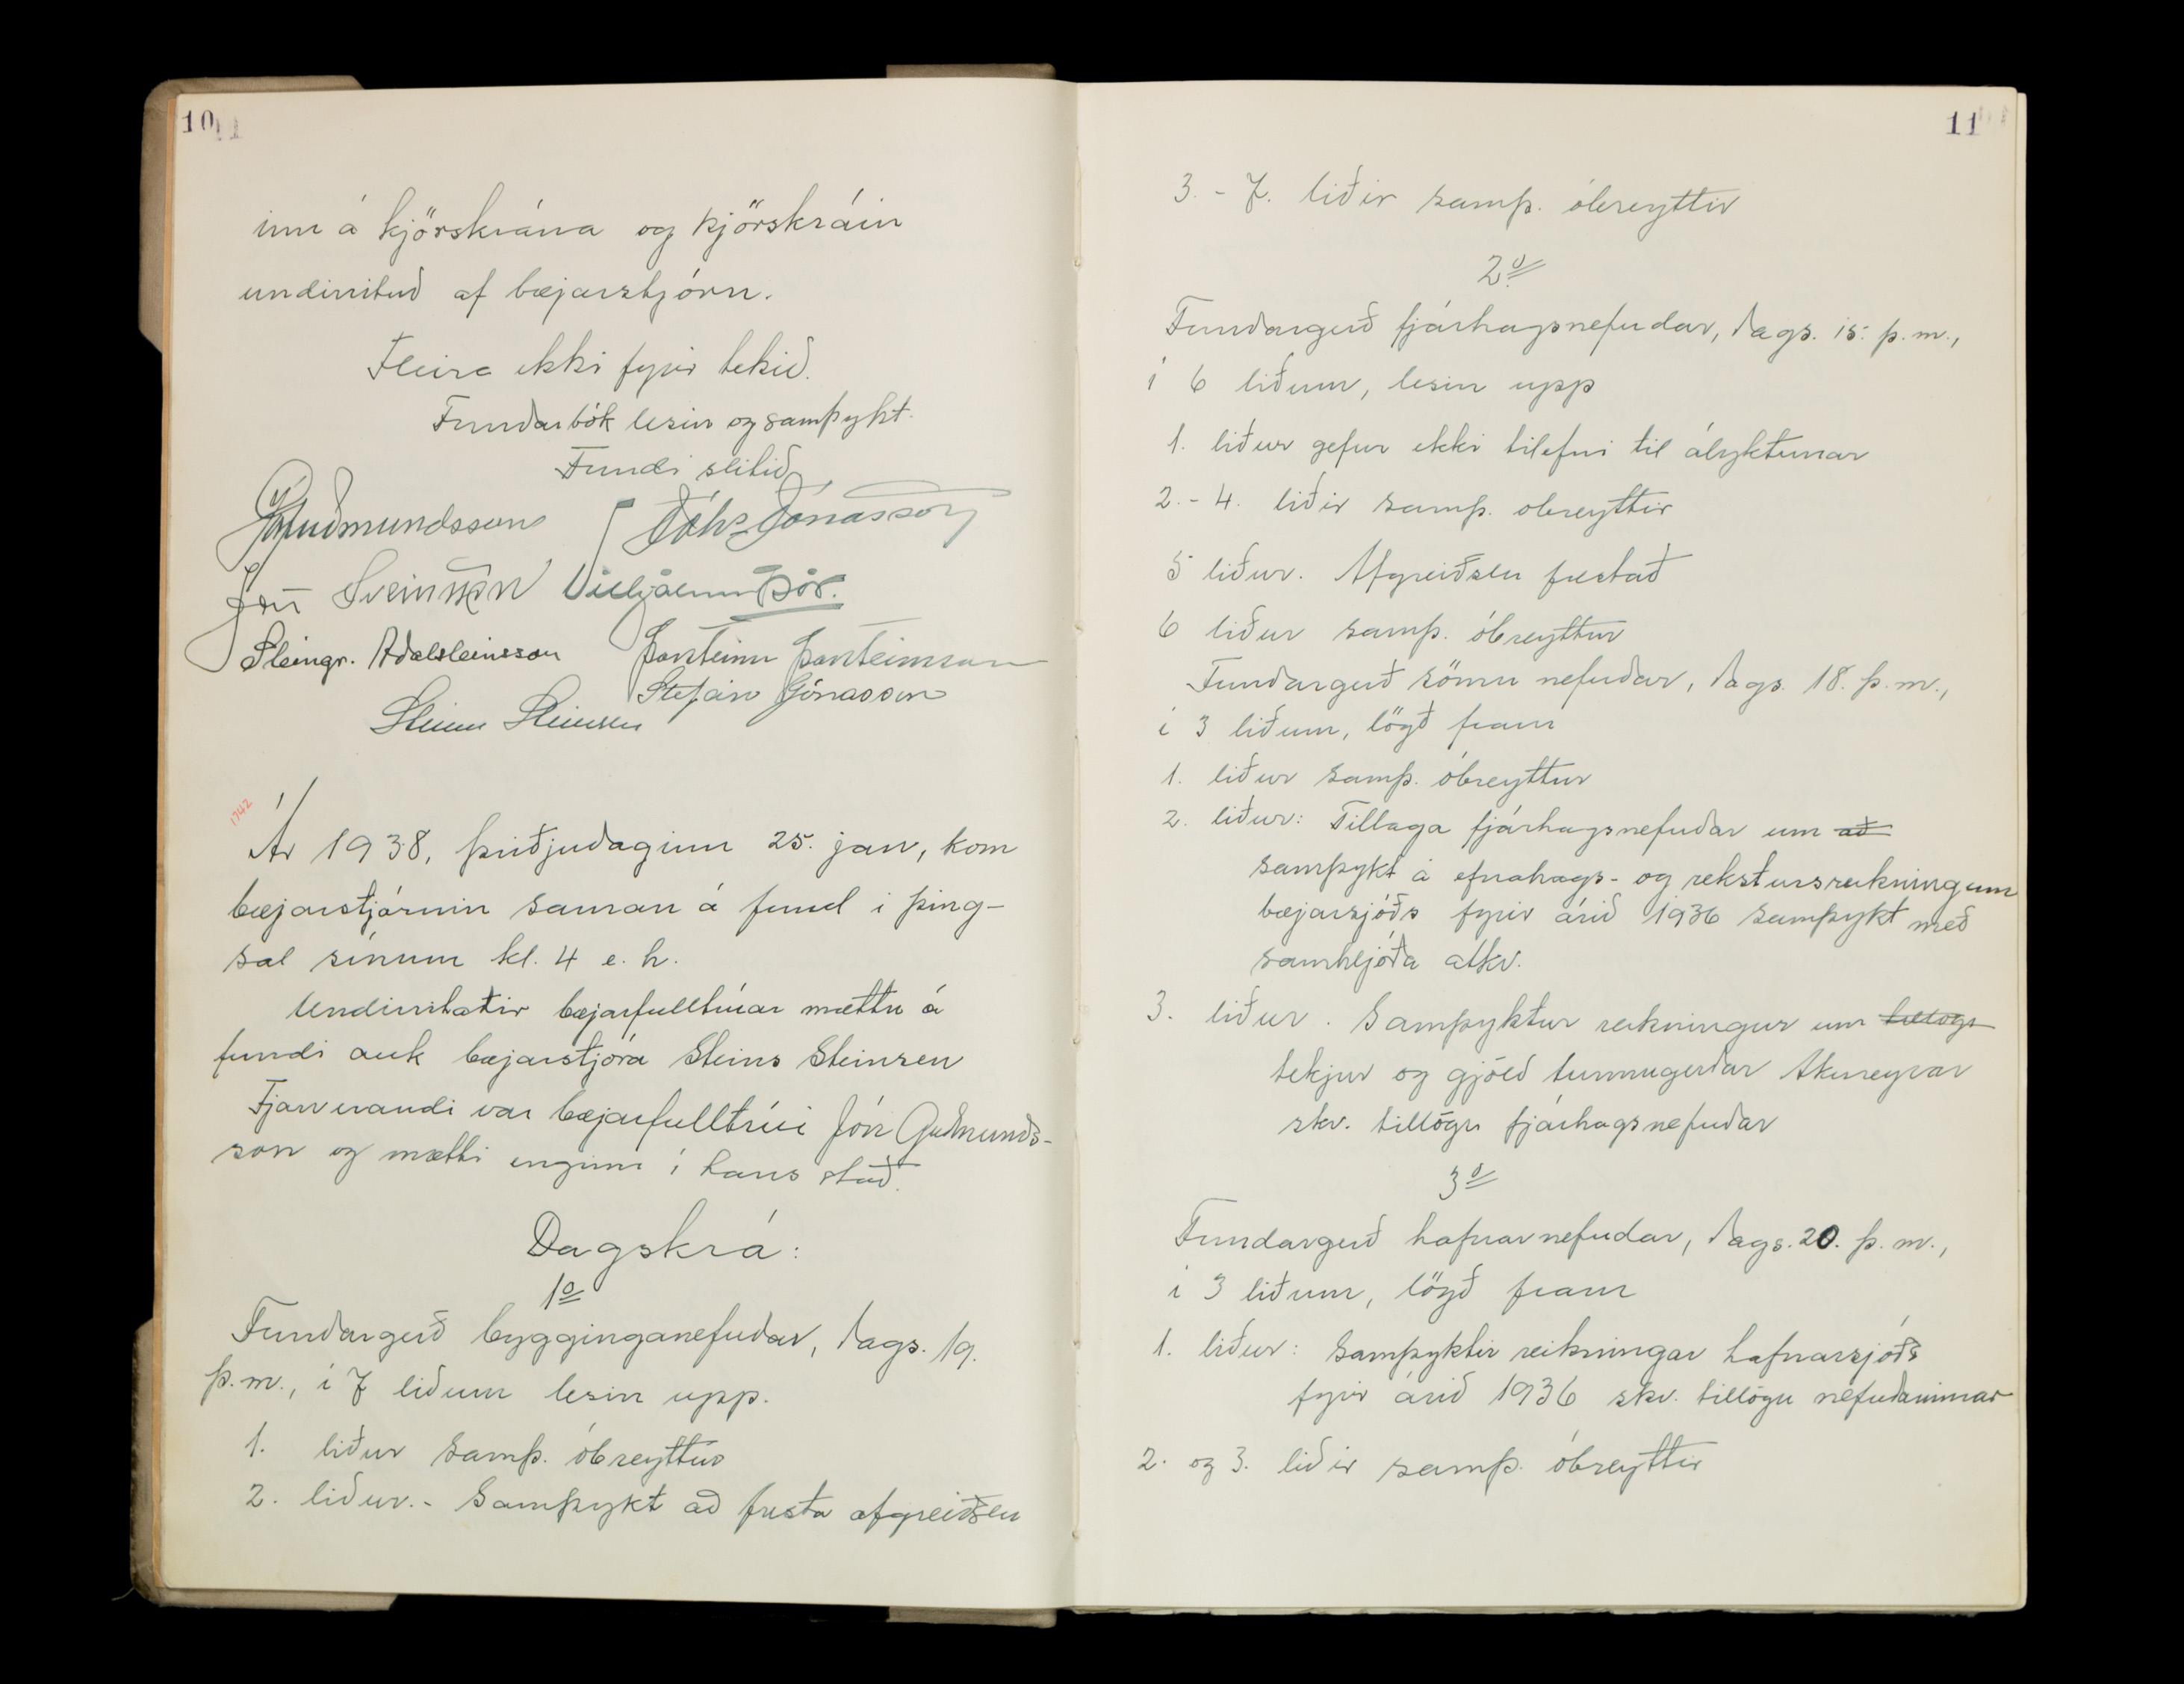 10
inn á kjörskrána og kjörskráin
undirrituð af bæjarstjórn.
Fleira ekki fyrir tekið.
Fundarbók lesin og samþykt.
Fundi slitið
J Guðmundsson
Jóhs Jónasson
Jón Sveinsson Vilhjálmur Þór.
Steingr. Aðalsteinsson Þorsteinn Þorsteinsson
Stefán Jónasson
Steinn Steinsen
1742
Ár 1938, þriðjudaginn 25. jan, kom
bæjarstjórnin saman á fund í þing-
sal sínum kl. 4 e. h.
Undirritaðir bæjarfulltrúar mættu á
fundi auk bæjarstjóra Steins Steinsen
Fjarverandi var bæjarfulltrúi Jón Guðmunds-
son og mætti enginn í hans stað.
Dagskrá:
1º
Fundargerð bygginganefndar, dags. 19.
þ.m., í 7 liðum lesin upp.
1. liður samþ. óbreyttur
2. liður. - Samþykt að fresta afgreiðslu
11
3. - 7. liðir samþ. óbreyttir
2º
Fundargerð fjárhagsnefndar, dags. 15. þ.m.,
í 6 liðum, lesin upp
1. liður gefur ekki tilefni til ályktunar
2. - 4. liðir samþ. obreyttir
5 liður. Afgreiðslu frestað
6 liður samþ. óbreyttur
Fundargerð sömu nefndar, dags. 18. þ.m.,
í 3 liðum, lögð fram
1. liður samþ. óbreyttur
2. liður: Tillaga fjárhagsnefndar um að
samþykt á efnahags- og rekstursreikningum
bæjarsjóðs fyrir árið 1936 samþykt með
samhljóða atkv.
3. liður. Samþyktur reikningur um tillögu
tekjur og gjöld tunnugerðar Akureyrar
skv. tillögu fjárhagsnefndar
3º
Fundargerð hafnarnefndar, dags. 20. þ.m.,
í 3 liðum, lögð fram
1. liður: Samþyktir reikningar hafnarsjóðs
fyrir árið 1936 skv. tillögu nefndarinnar
2. og 3. liðir samþ. óbreyttir